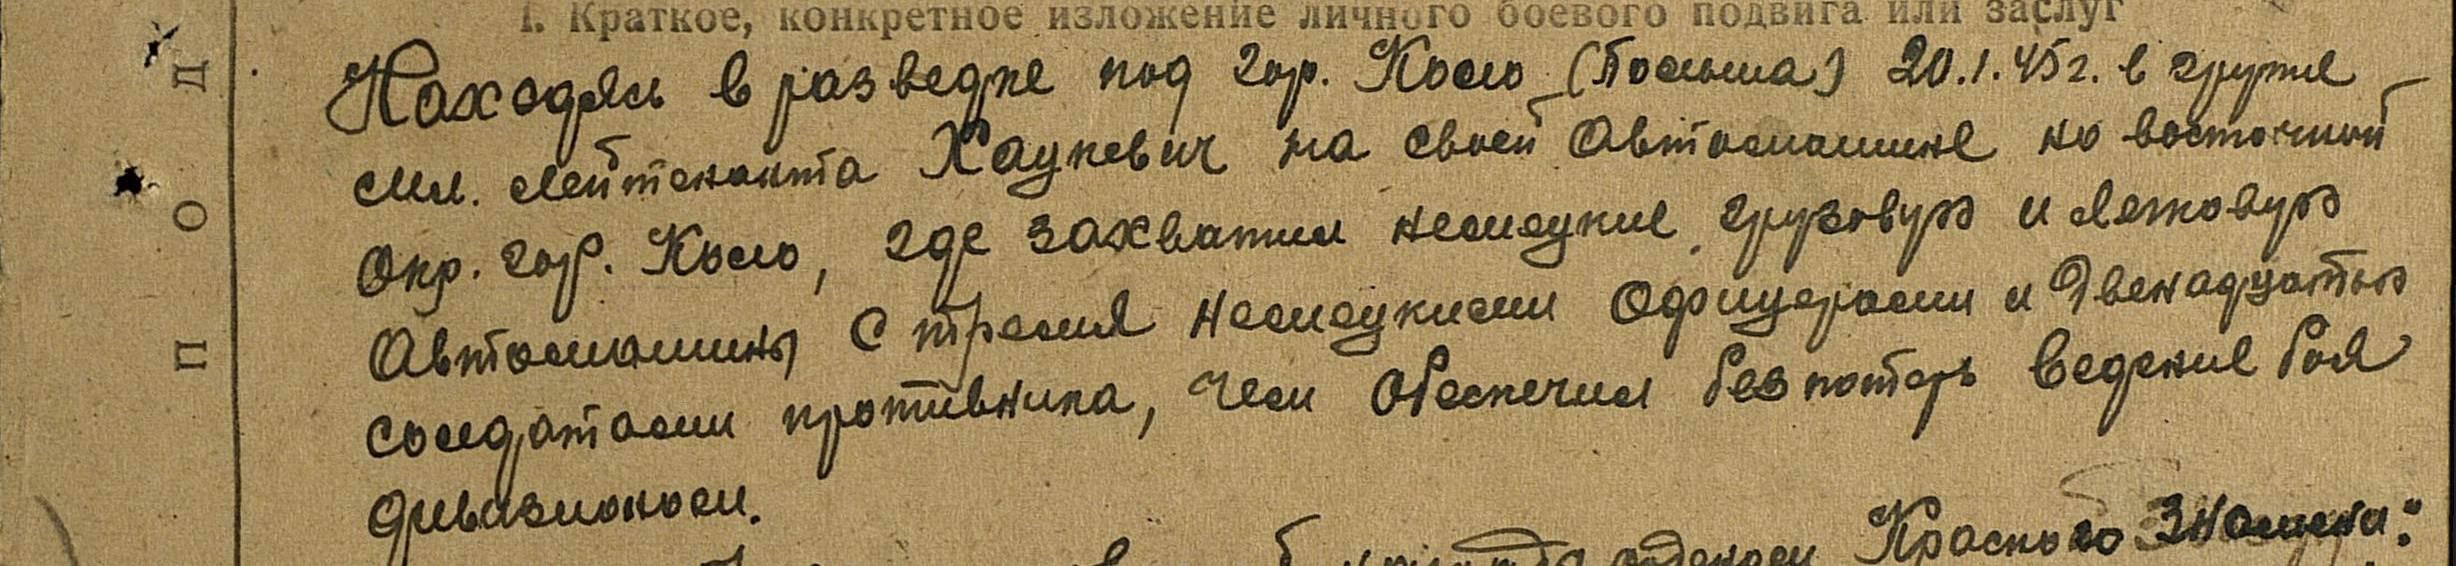 1. Краткое, конкретное изложение личного боевого подвига или заслуг
Находясь в разведке под гор. Коло (Польша) 20.1.45г. в группе
мл. лейтенанта Хаукевич на своей Автомашине на восточной
окр. гор. Коло, где захватил немецкие грузовую и легковую
Автомашины с тремя немецкими Офицерами и Двенадцатью
солдатами противника, чем Обеспечил без потерь ведение боя
дивизионом.
орденом Красного Знамени:
П О Д